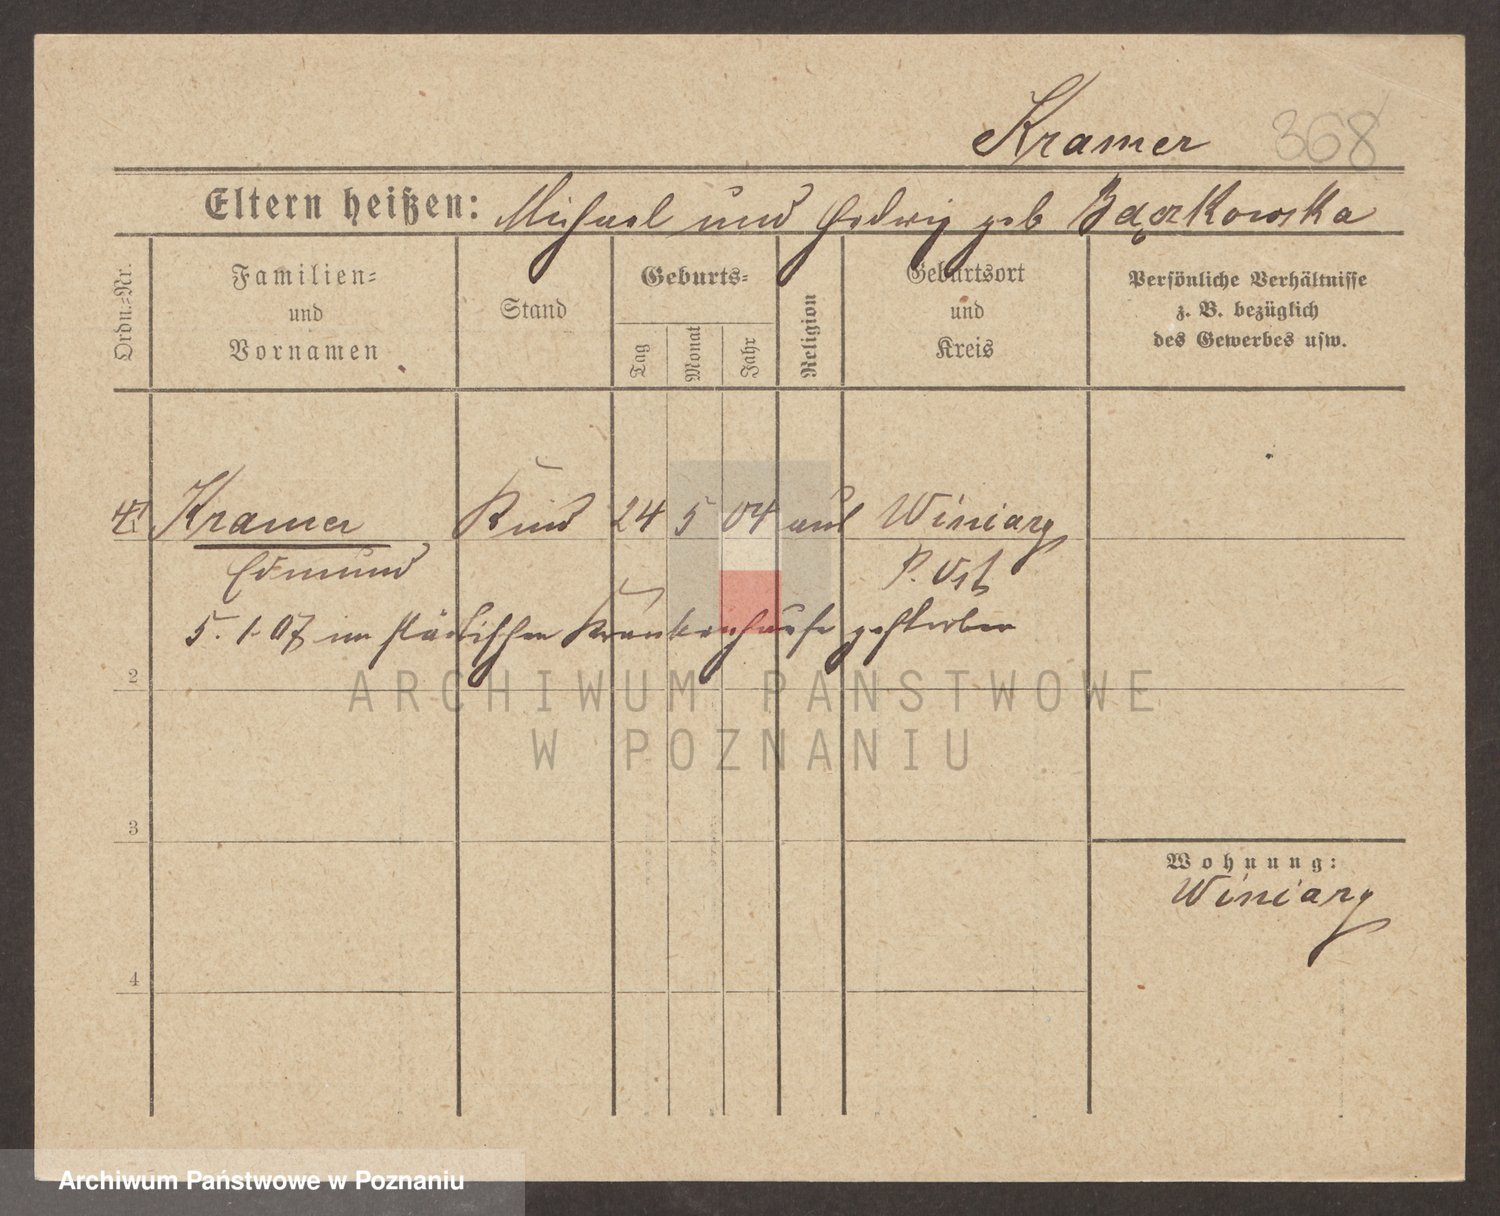 Kramer 368
Eltern heißen: Michael und Hedwig geb Bączkowska
Ordn.=Nr.
Familien=
und
Vornamen
Stand
Geburts=
Tag
Monat
Jahr
Religion
Geburtsort
und
Kreis
Persönliche Verhältnisse
z. B. bezüglich
des Gewerbes usw.
Kramer Kind 24 5 04 Winiary
Edmund P. Ost
5. 1. 07 im städtischen Krankenhause gestorben
2
ARCHIWUM PAŃSTWOWE
W POZNANIU
3
Wohnung:
Winiary
4
Archiwum Państwowe w Poznaniu